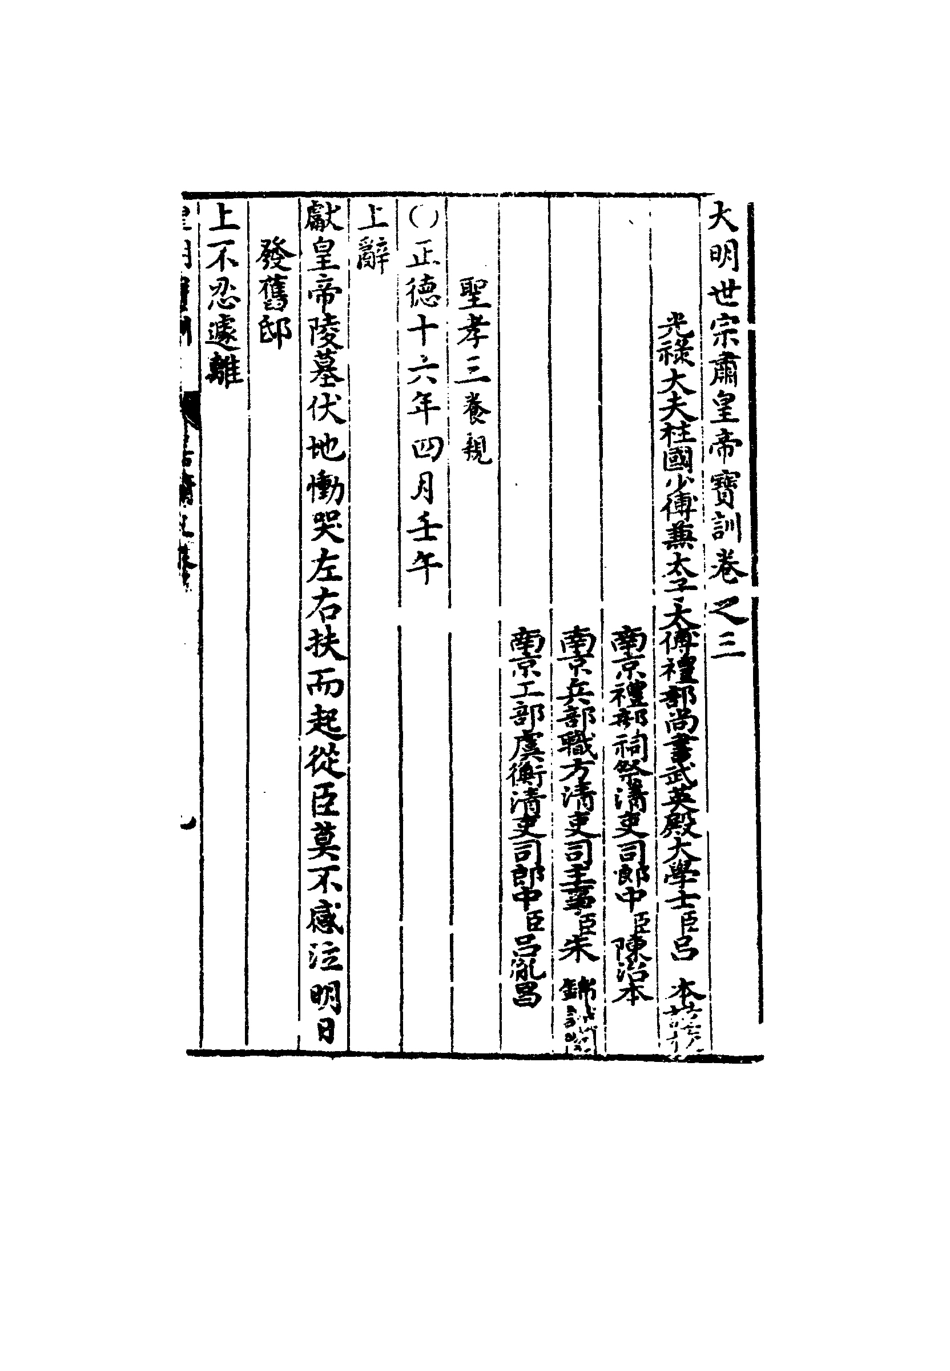 大明世宗肅皇帝寶訓卷之三
光祿大夫柱國少傅兼太子太傅禮部尚書武英殿大學士臣呂本
南京禮部祠祭清吏司郎中臣陳治本
南京兵部職方清吏司主事臣朱錦
南京工部虞衡清吏司郎中臣呂胤昌
聖孝三養親
○正德十六年四月壬午
上辭
獻皇帝陵墓伏地慟哭左右扶而起從臣莫不感泣明日
發舊邸
上不忍遽離